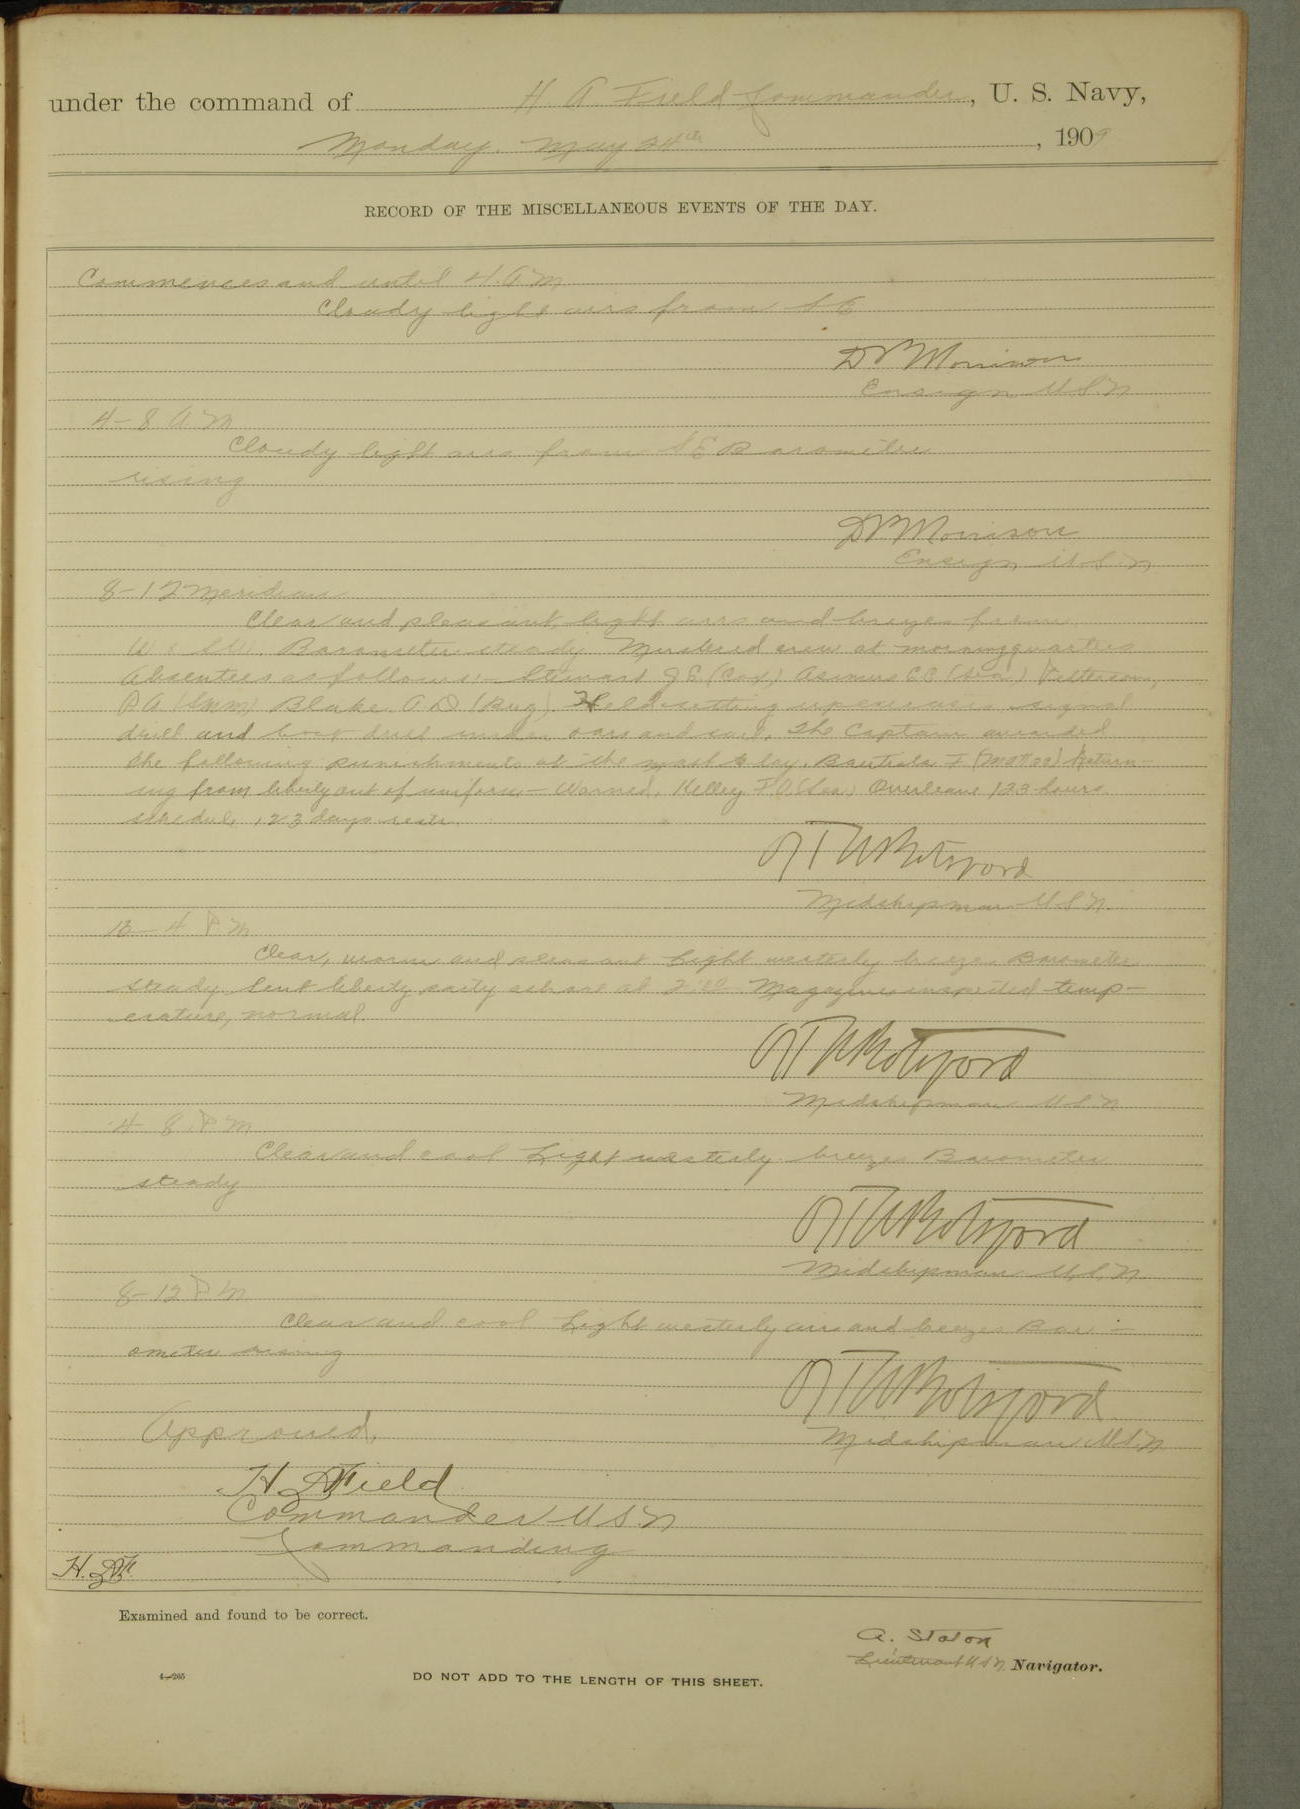 under the command of H. A. Field Commander, U. S. Navy,
Monday, May 24th, 1909
RECORD OF THE MISCELLANEOUS EVENTS OF THE DAY.
Commences and until 4 A M
Cloudy light airs from S E
Morrison
Ensign U.S.N
4-8 A M
Cloudy light airs from S E Barometer
rising
Morrison
Ensign U.S.N
8-12 Meridian
Clear and pleasant, light airs and breezes from
W & SW. Barometer steady Mustered crew at morning quarters
Absentees as follows:- Stewart J E (Cox) E C (Sea) Patterson,
Blake. A D (Bug) Held setting up exercises signal
drill and boat drill under oars and sail. The Captain awarded
the following punishments at the mast to day. Bautista F (Matt 00) Return-
ing from liberty out of uniform - Warned. Kelley (Sea) Overleave 123 hours.
schedule, 123 days restr.
Botsford
Midshipman U S N.
12-4 P M
Clear, warm and pleasant Light westerly breezes Barometer
steady. Sent liberty party ashore at Magazines inspected temp-
erature, normal.
Botsford
Midshipman U.S.N
4-8 P M
Clear and cool Light westerly breezes Barometer
steady
Botsford
Midshipman U.S.N
8-12 P M
Clear and cool Light westerly airs and breezes Bar-
ometer rising
Botsford
Midshipman U.S.N
Approved,
H A Field
Commander U S N
Commanding
H. A. F.
Examined and found to be correct.
A. Staton
Lieutenant U S N. Navigator.
4-265
DO NOT ADD TO THE LENGTH OF THIS SHEET.